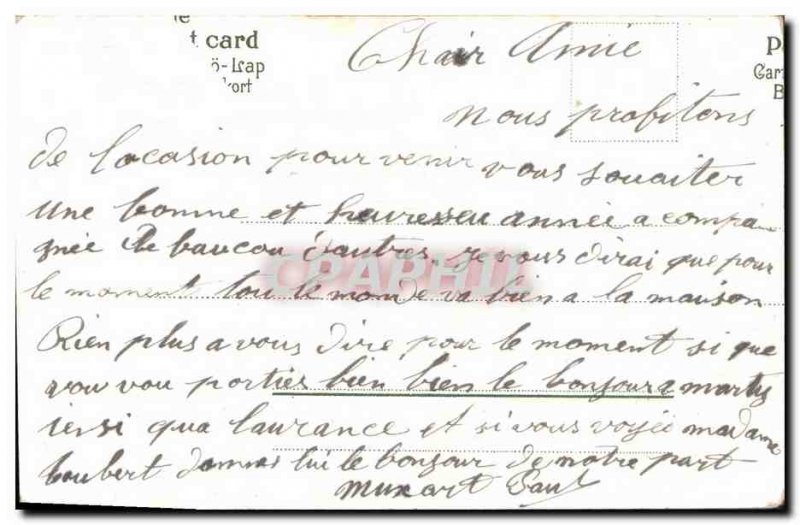 t card
ö-Lap
kort
P
Car
B
Chair Amie
Nous profitons
de locasion pour venir vous souaiter
une bonne et heuresseu année a compa
gnée de baucou dautres. Je vous dirai que pour
le moment tou le monde va bien a la maison
Rien plus a vous dire pour le moment si que
vou vou portier bien bien le bonjour a
iensi qua laurance et si vous voyée madame
boubert donnes lui le bonjour de notre part
Muxart Paul
CPAPHIL